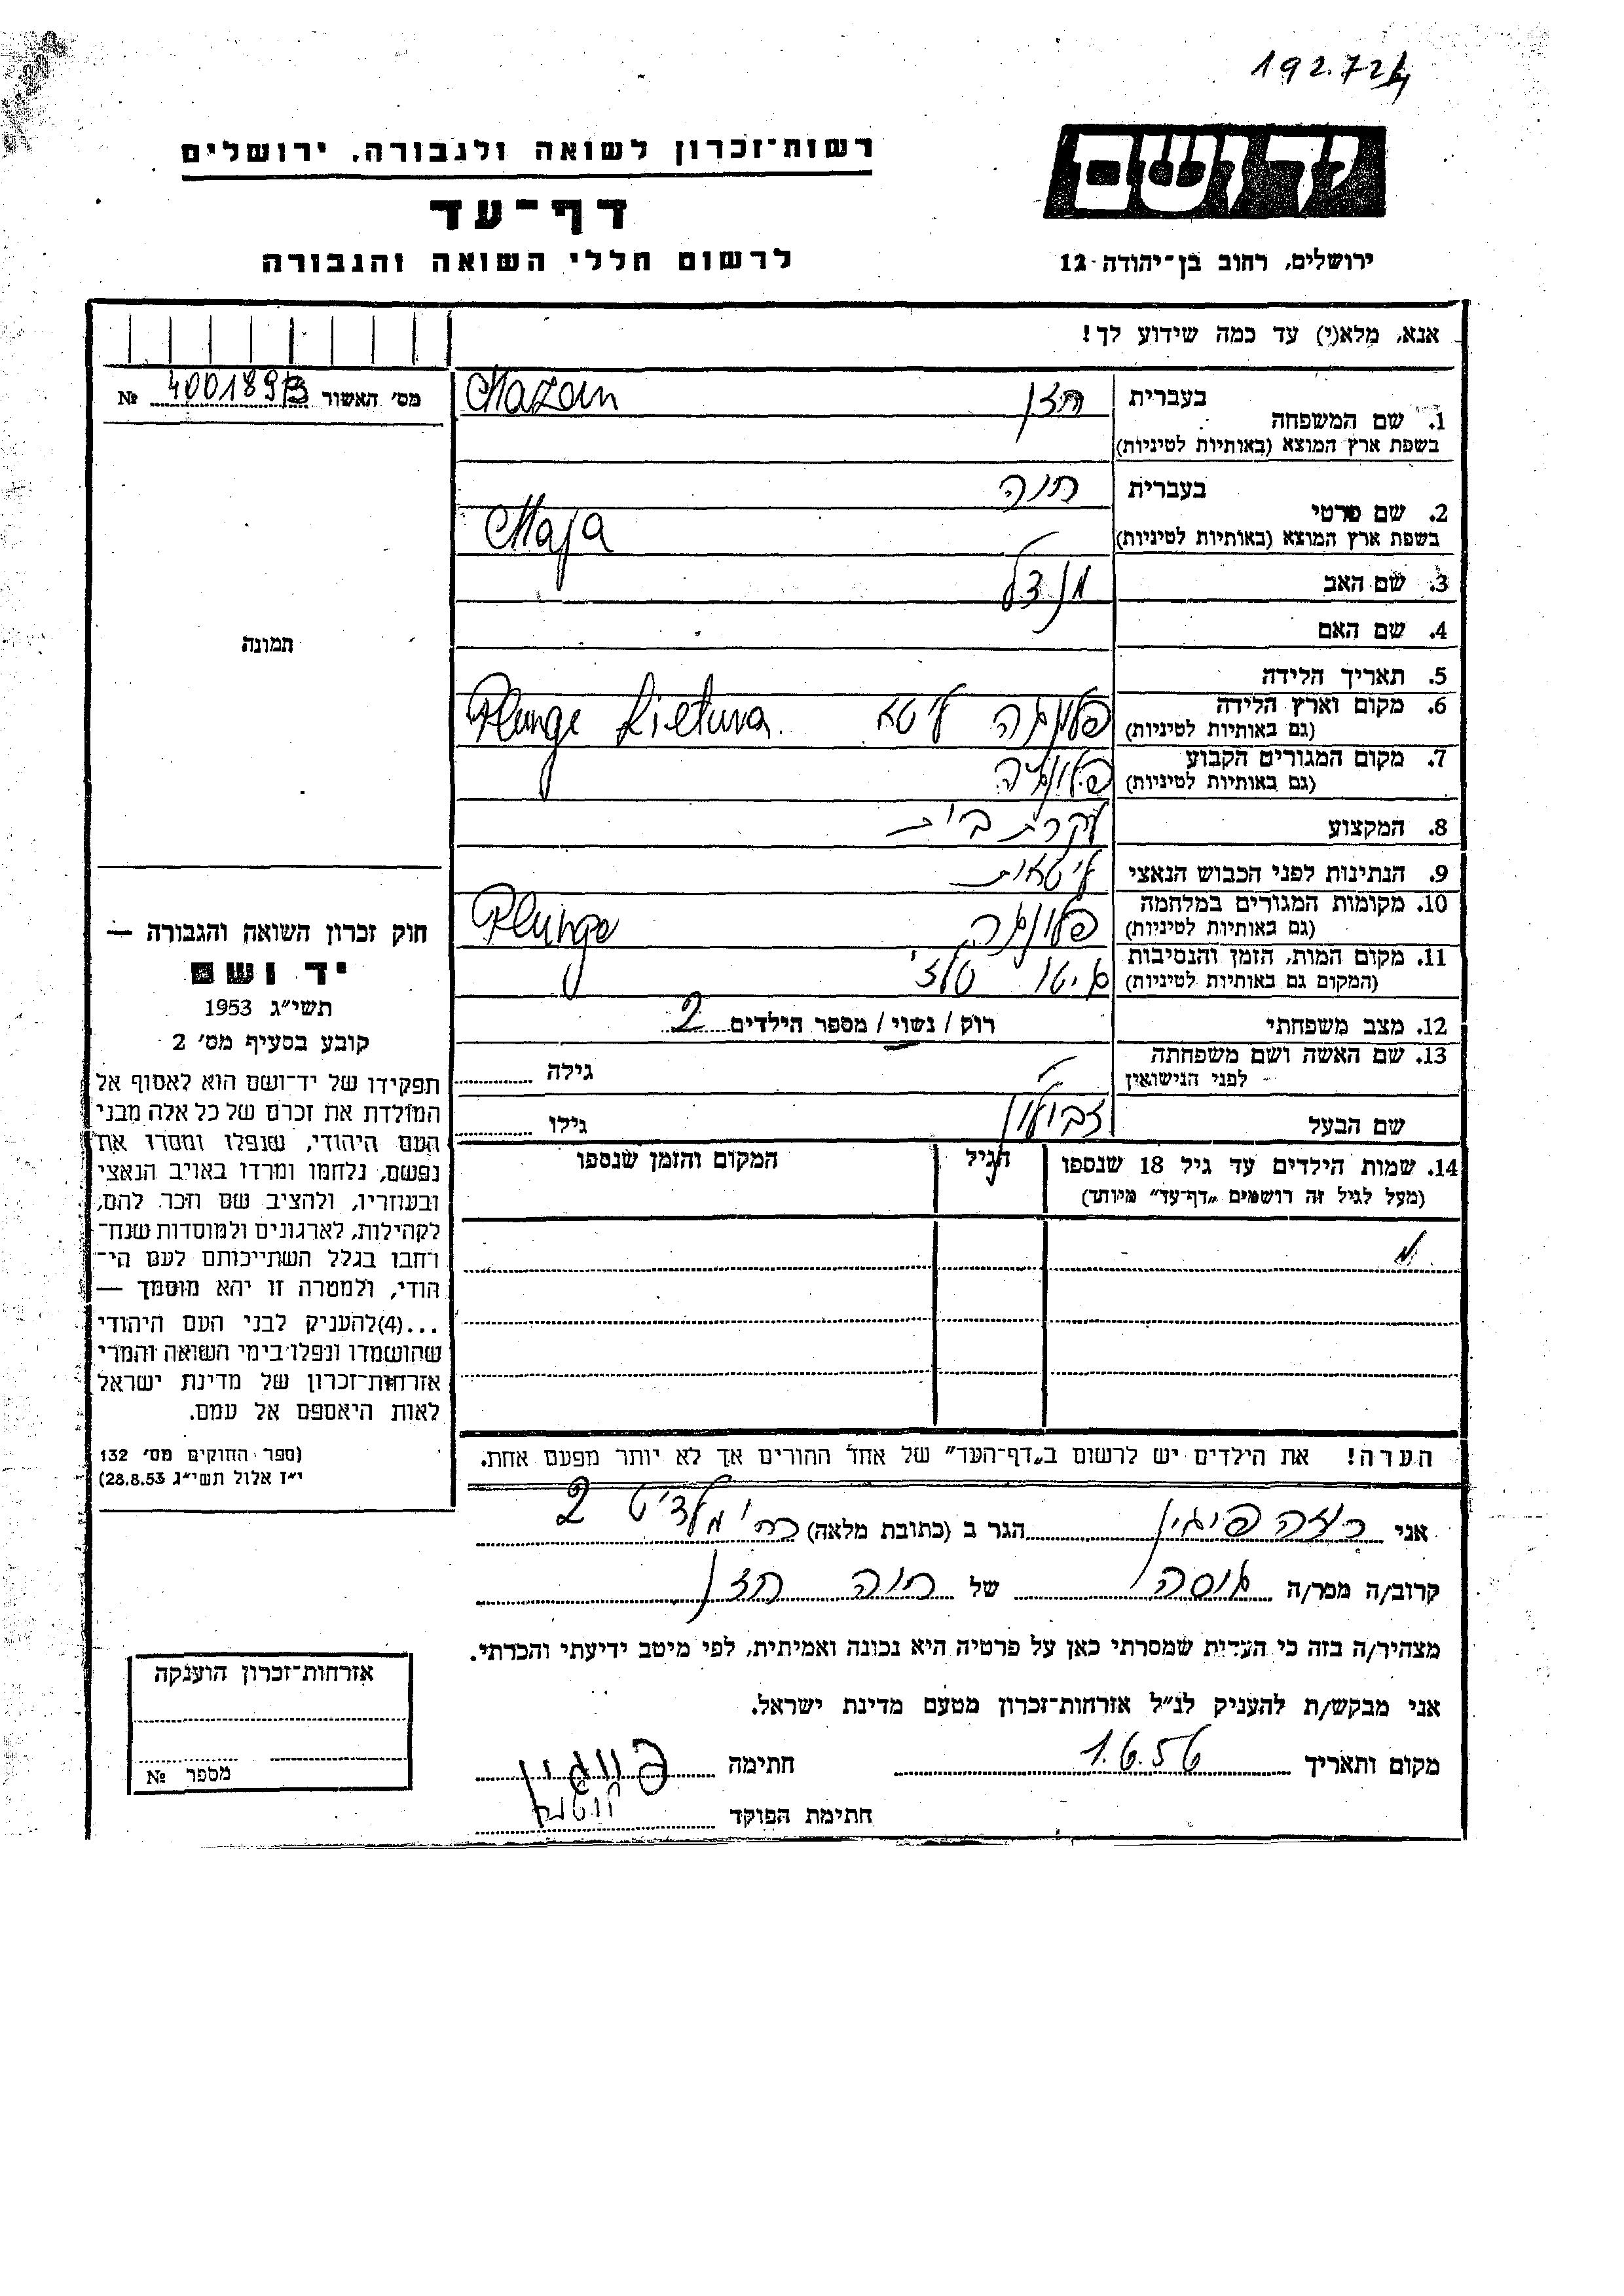 192.724
רשות־זכרון לשואה ולגבורה, ירושלים
יד ושם
דף־עד
לרשום חללי השואה והגבורה
ירושלים, רחוב בן־יהודה 12
אנא, מלא(י) עד כמה שידוע לך!
מס׳ האשור № 400189
1. שם המשפחה בעברית חזן Chazan
בשפת ארץ המוצא (באותיות לטיניות)
2. שם פרטי בעברית חיה
בשפת ארץ המוצא (באותיות לטיניות) Chaja
3. שם האב מנדל
4. שם האם
תמונה
5. תאריך הלידה
6. מקום וארץ הלידה פלונגה ליטא Plunge Lietuva.
(גם באותיות לטיניות)
7. מקום המגורים הקבוע פלונגה
(גם באותיות לטיניות)
8. המקצוע עקרת בית
9. הנתינות לפני הכבוש הנאצי ליטאית
10. מקומות המגורים במלחמה פלונגה Plunge
(גם באותיות לטיניות)
11. מקום המות, הזמן והנסיבות
(המקום גם באותיות לטיניות)
12. מצב משפחתי רוק / נשוי / מספר הילדים 2
13. שם האשה ושם משפחתה גילה
לפני הנישואין
שם הבעל זבולון גילו
14. שמות הילדים עד גיל 18 שנספו הגיל המקום והזמן שנספו
(מעל לגיל זה רושמים „דף־עד״ מיוחד)
חוק זכרון השואה והגבורה —
יד ושם
תשי״ג 1953
קובע בסעיף מס׳ 2
תפקידו של יד־ושם הוא לאסוף אל
המולדת את זכרם של כל אלה מבני
העם היהודי, שנפלו ומסרו את
נפשם, נלחמו ומרדו באויב הנאצי
ובעוזריו, ולהציב שם וזכר להם,
לקהילות, לארגונים ולמוסדות שנח־
רחבו בגלל השתייכותם לעם הי־
הודי, ולמטרה זו יהא מוסמך —
...(4)להעניק לבני העם היהודי
שהושמדו ונפלו בימי השואה והמרי
אזרחות־זכרון של מדינת ישראל
לאות היאספם אל עמם.
(ספר החוקים מס׳ 132
י״ז אלול תשי״ג 28.8.53)
הערה! את הילדים יש לרשום ב„דף־העד״ של אחד ההורים אך לא יותר מפעם אחת.
אני רוזה פייגין הגר ב (כתובת מלאה) 2
קרוב/ה מכר/ה של חיה חזן
מצהיר/ה בזה כי העדות שמסרתי כאן על פרטיה היא נכונה ואמיתית, לפי מיטב ידיעתי והכרתי.
אני מבקש/ת להעניק לנ״ל אזרחות־זכרון מטעם מדינת ישראל.
מקום ותאריך 1.6.56 חתימה פייגין
חתימת הפוקד
אזרחות־זכרון הוענקה
מספר №